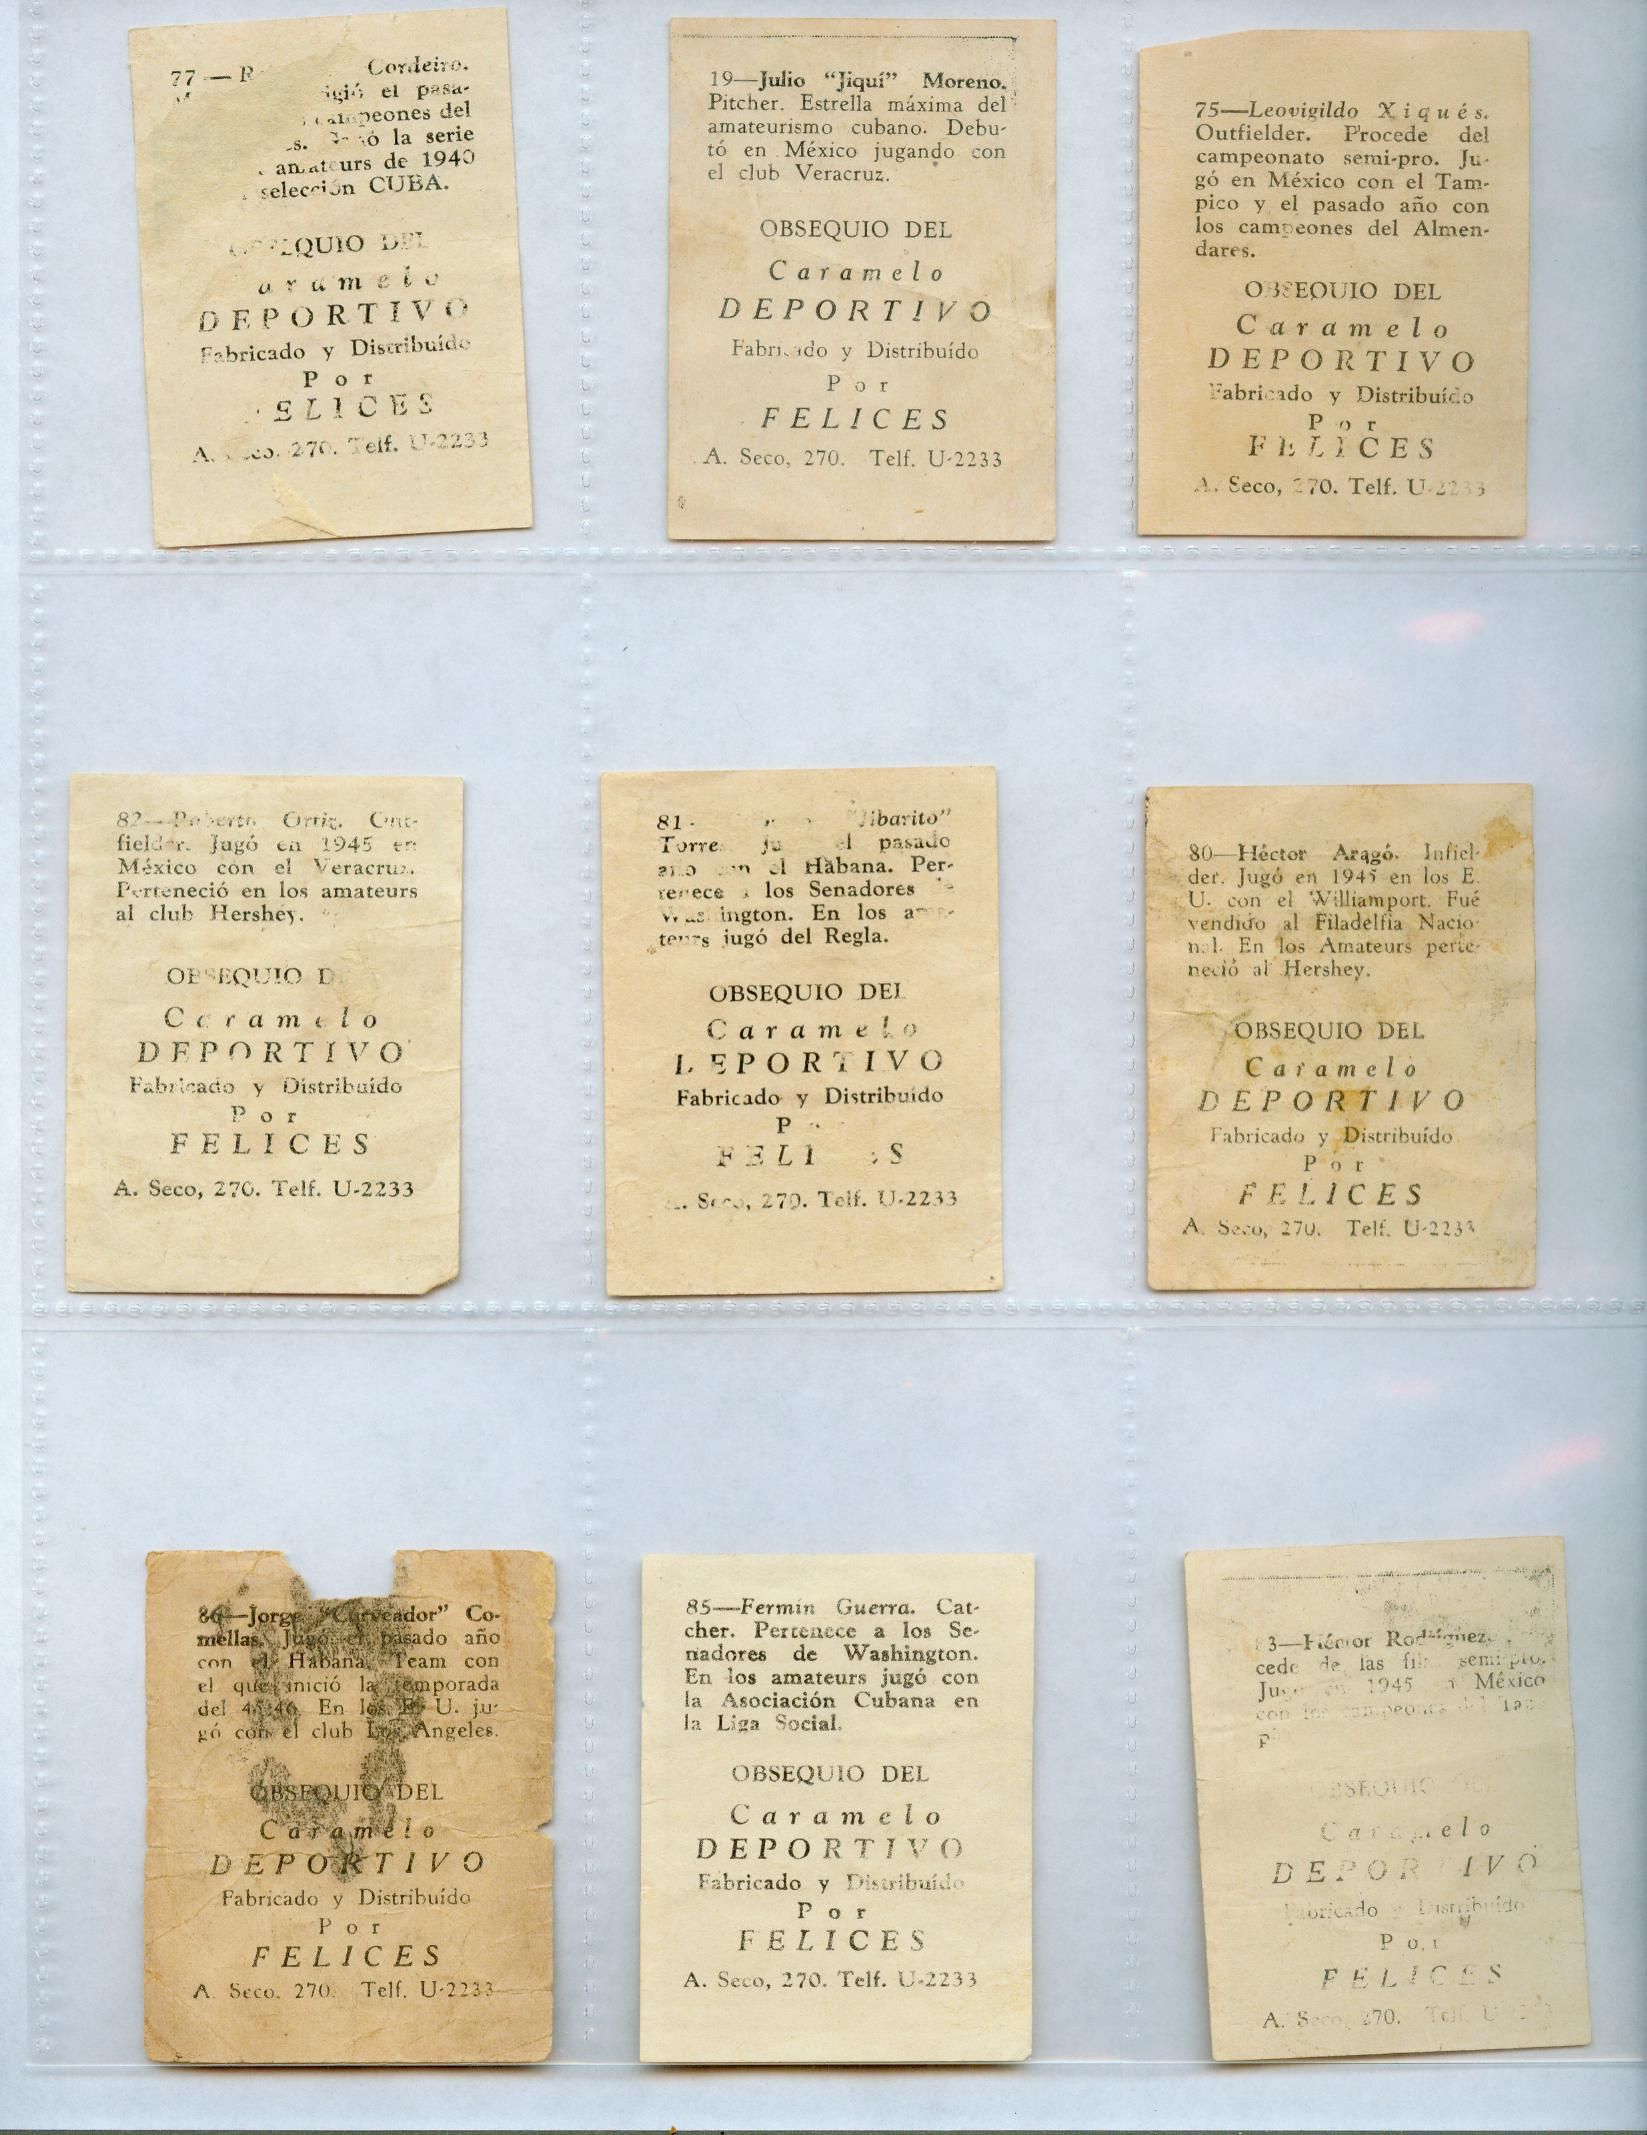 77— Cordeiro.
el pasa-
del
la serie
de 1940
CUBA.
DEL
DEPORTIVO
Fabricado y Distribuído
Por
A. 270. Telf. U-2233
19—Julio "Jiquí" Moreno.
Pitcher. Estrella máxima del
amateurismo cubano. Debu-
tó en México jugando con
el club Veracruz.
OBSEQUIO DEL
Caramelo
DEPORTIVO
Fabricado y Distribuído
Por
FELICES
A. Seco, 270. Telf. U-2233
75—Leovigildo Xiqués.
Outfielder. Procede del
campeonato semi-pro. Ju-
gó en México con el Tam-
pico y el pasado año con
los campeones del Almen-
dares.
OBSEQUIO DEL
Caramelo
DEPORTIVO
Fabricado y Distribuído
Por
FELICES
A. Seco, 270. Telf. U-2233
82—Roberto Ortiz. Out-
fielder. Jugó en 1945 en
México con el Veracruz.
Perteneció en los amateurs
al club Hershey.
OBSEQUIO
Caramelo
DEPORTIVO
Fabricado y Distribuído
Por
FELICES
A. Seco, 270. Telf. U-2233
81- "Jibarito"
Torres el pasado
el Habana. Per-
tenece a los Senadores
Washington. En los
jugó del Regla.
OBSEQUIO DEL
Caramelo
DEPORTIVO
Fabricado y Distribuído
A. Seco, 270. Telf. U-2233
80—Héctor Aragó. Infiel-
der. Jugó en 1945 en los E.
U. con el Williamport. Fué
vendido al Filadelfia Nacio-
nal. En los Amateurs perte-
neció al Hershey.
OBSEQUIO DEL
Caramelo
DEPORTIVO
Fabricado y Distribuído
Por
FELICES
A. Seco, 270. Telf. U-2233
86—Jorge "Curveador" Co-
mellas. Jugó el pasado año
con el Habana, Team con
el que inició la temporada
del 45-46. En los E. U. ju-
gó con el club Los Angeles.
OBSEQUIO DEL
Caramelo
DEPORTIVO
Fabricado y Distribuído
Por
FELICES
A. Seco. 270. Telf. U-2233
85—Fermín Guerra. Cat-
cher. Pertenece a los Se-
nadores de Washington.
En los amateurs jugó con
la Asociación Cubana en
la Liga Social.
OBSEQUIO DEL
Caramelo
DEPORTIVO
Fabricado y Distribuído
Por
FELICES
A. Seco, 270. Telf. U-2233
Héctor Rodríguez.
cede de las semi-pro.
1945 México
con los campeones del
Caramelo
DEPORTIVO
Fabricado y Distribuído
Por
FELICES
A. Seco, 270.